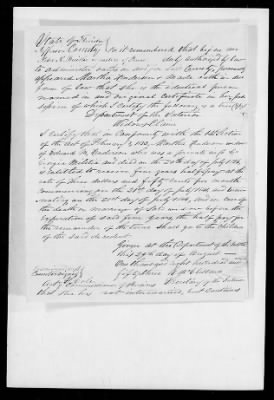 State of Florida
Jefferson County Be it remembered that before me
a Justice of Peace duly authorized by law
to administer oaths in and for the County
appeared Martha Anderson & made oath in due
form of law that she is the identical person
named in an original certificate in her pos
session of which I certify the following is a true Copy
Department of the Interior
Widows Claim
I certify that in Conformity with the Section
of the act of February 3, 1853, Martha Anderson widow
of Edward M. Anderson who was a private
Georgia Militia and died on the 20th day of July 1836,
is entitled to receive five years half pay at the
rate of three dollars and fifty cents per month
Commencing on the 20th day of July 1836, and termi
nating on the 20th day of July 1841, and in case of
the death or marriage of said widow before the
expiration of said five years, the half pay for
the remainder of the time shall go to the children
of the said decedent.
Given at the Department of the Interior
this 29th day of August
One thousand eight hundred and
fifty three R McClelland
Countersigned
Cole
Commissioner of Pensions Secretary of the Interior
that she has not intermarried, but Continues